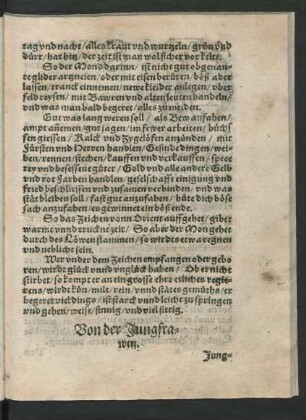 tag vnd nacht / alles kraut vnd wurtzeln / grün vnd
dürr / hat hin / der zeit ist man wol sicher vor kelte.
So der Mond darinn / ist nicht gut obgenan-
te glider artzneien / oder mit eisen berüren / böß ader
lassen / tranck einnemen / newe kleider anlegen / vber
feld reysen / mit Bawren vnd alten leuten handeln /
vnd was man bald begeret / alles zu meiden.
Gut was lang weren soll / als Bew anfahen /
ampt annemen / gut jagen / im fewer arbeiten / büchs
sen giessen / Kalck vnd Zygelöfen anzünden / mit
Fürsten vnd Herren handlen / Gesinde dingen / wei-
ben / rennen / stechen / kauffen vnd verkauffen / spece
rey vnd besessene güter / Gold vnd alle andere Gelb
vnd rot Farben handlen / geselschafft / einigung vnd
fried beschliessen vnd zusamen verbinden / vnd was
stät bleiben soll / fast gut anzufahen / hüte dich böse
sach anzufahen / es gewinnet ein böß ende.
So das Zeichen vom Orient auff gehet / gibet
warme vnnd trückne zeit / So aber der Mon gehet
durch des Löwen stammen / so wirdt etwa regnen
vnd neblicht sein.
Wer vnder dem Zeichen empfangen oder gebo-
ren / wirdt glück vnnd vnglück haben / Ob er nicht
stirbet / so kompt er an ein grosse ehr erliches regie-
rens / wirdt kün / milt / rein / vnnd stätes gemüths / er
begeret viel dings / ist starck vnnd leicht zu springen
vnd gehen / weise / sinnig / vnd vielsittig.
Von der Jungfra-
wen.
Jung-